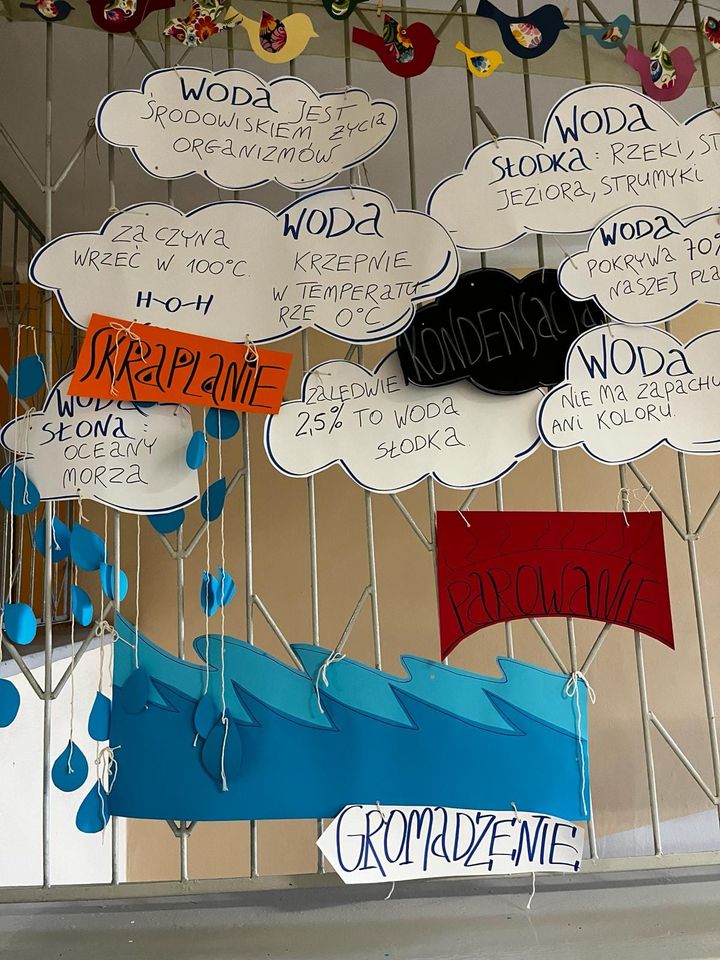 WODA JEST
ŚRODOWISKIEM ŻYCIA
ORGANIZMÓW
WODA
SŁODKA: RZEKI, ST
JEZIORA, STRUMYKI
ZACZYNA
WRZEĆ W 100°C.
H-O-H
WODA
KRZEPNIE
W TEMPERATU-
RZE 0°C
WODA
POKRYWA 70%
NASZEJ PLA
KONDENSACJA
SKRAPLANIE
WODA
SŁONA:
OCEANY
MORZA
ZALEDWIE
2,5% TO WODA
SŁODKA.
WODA
NIE MA ZAPACHU
ANI KOLORU.
PAROWANIE
GROMADZENIE